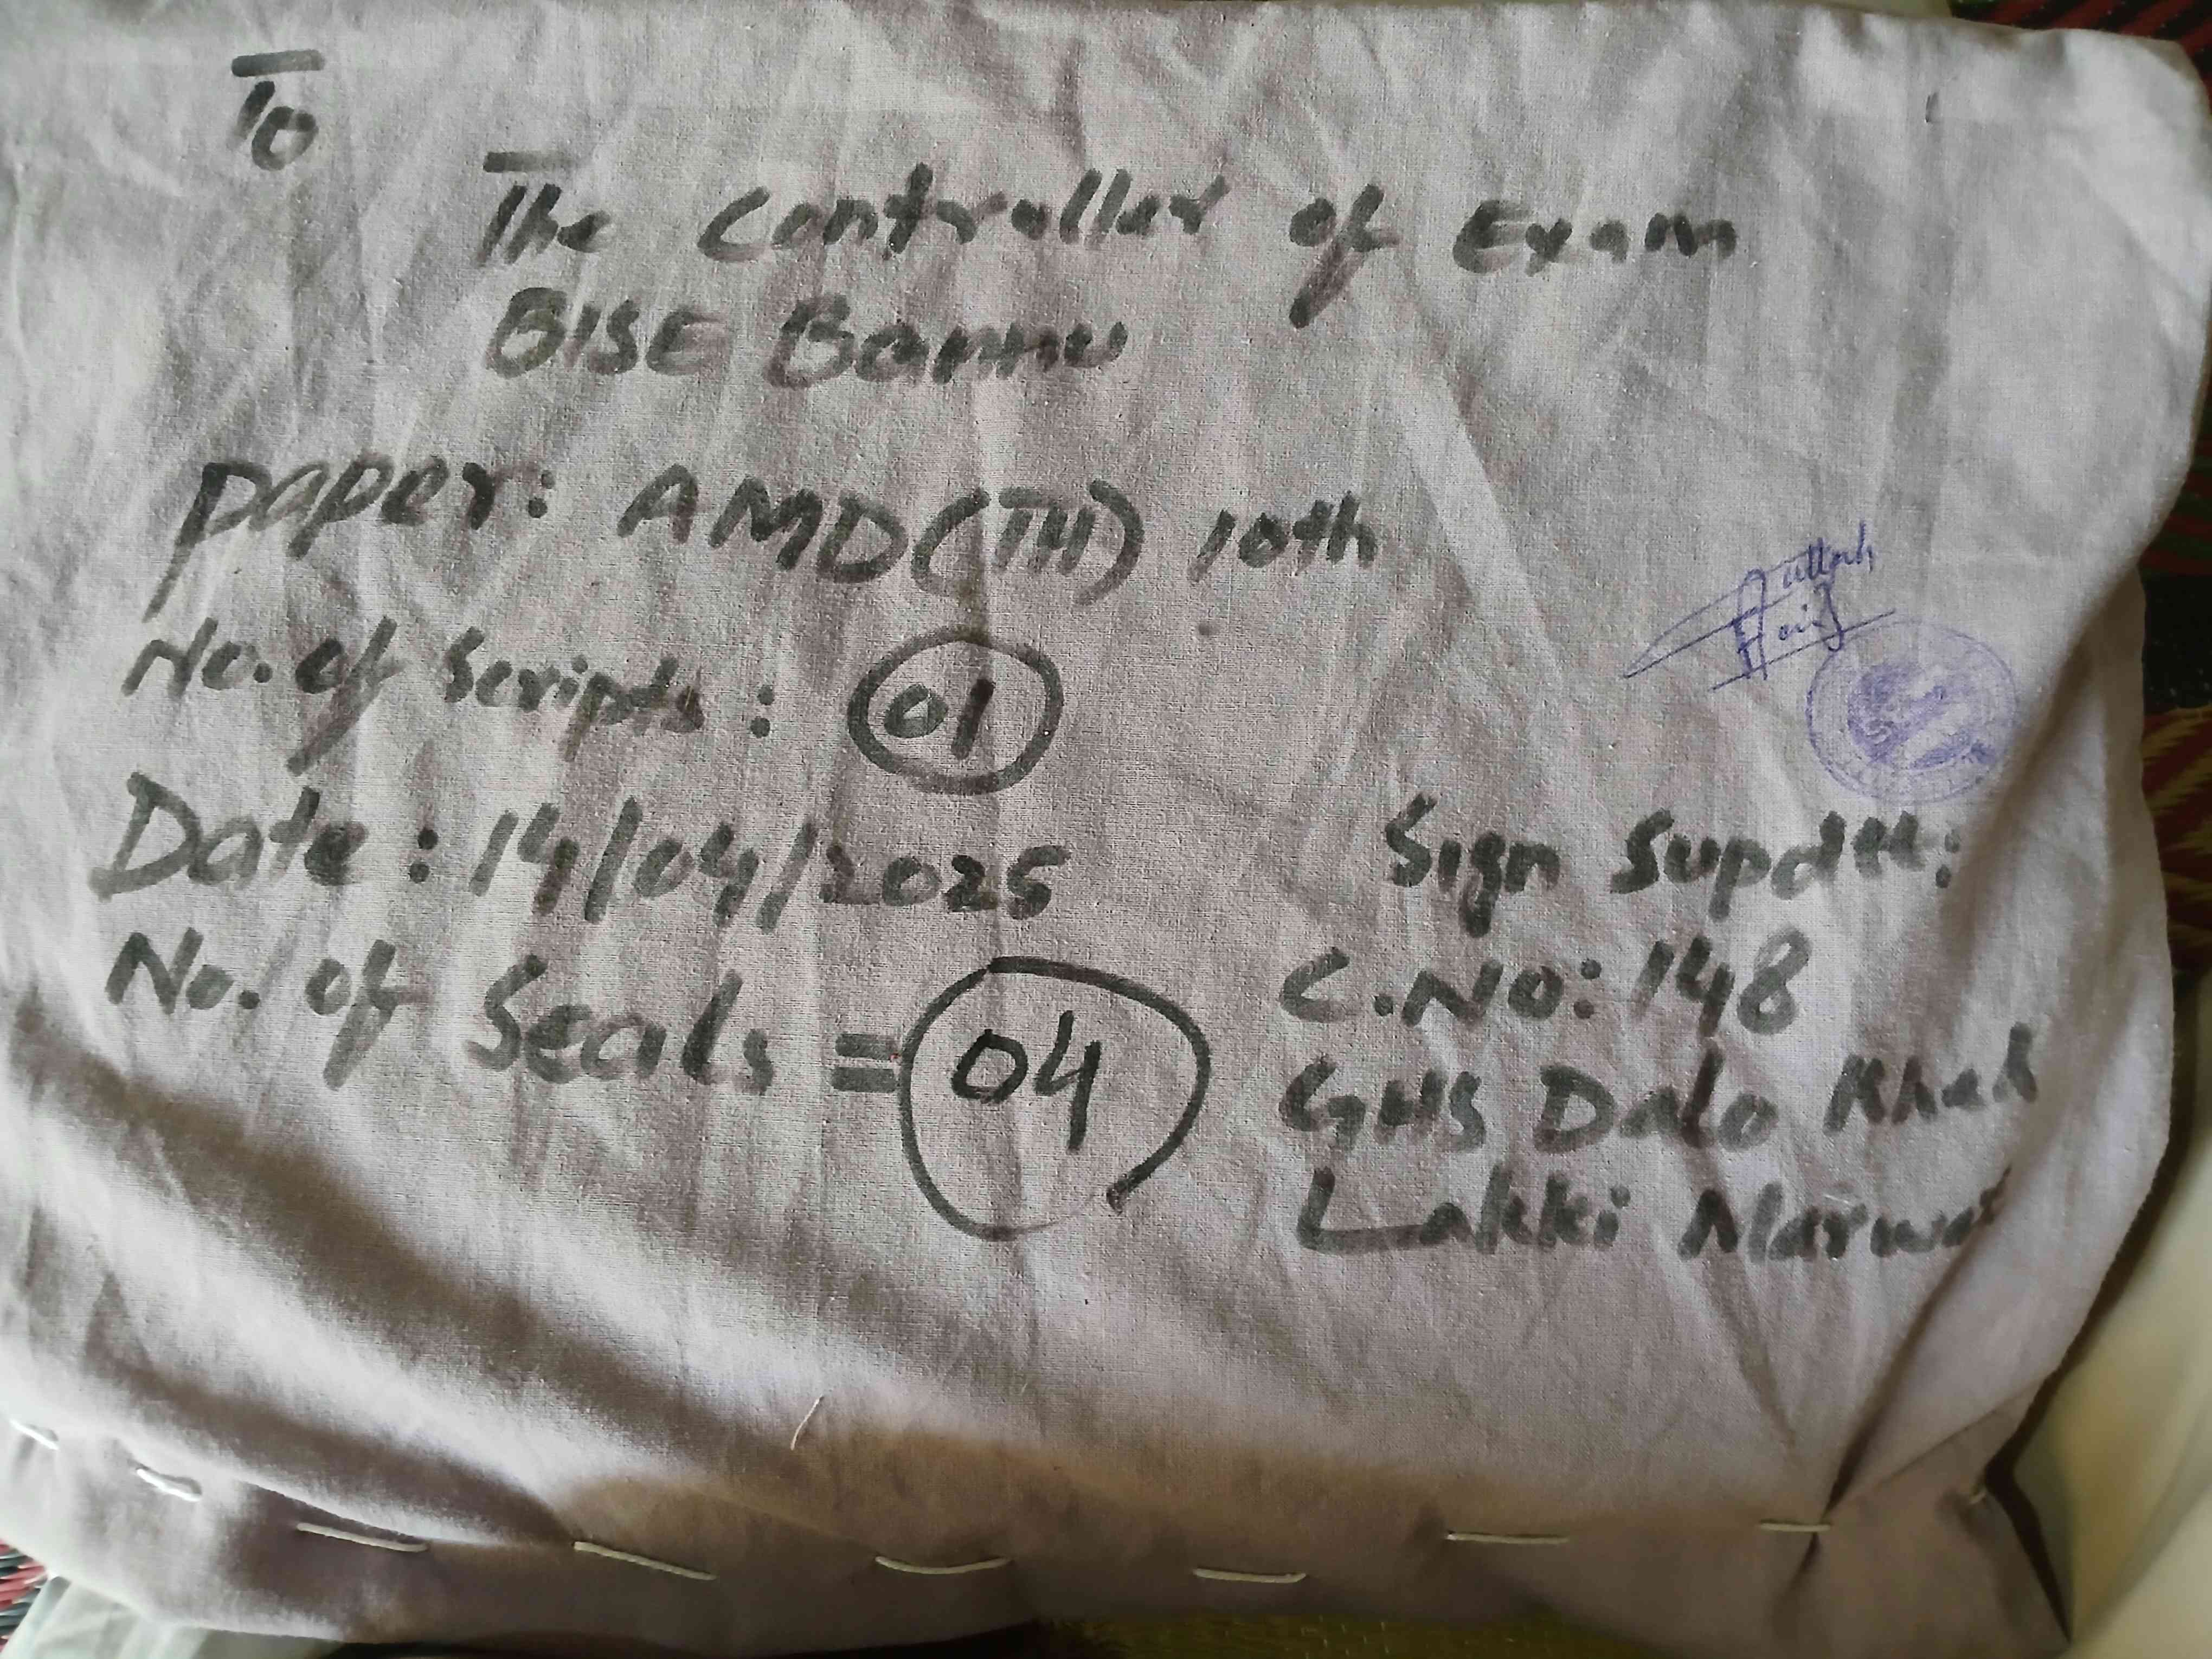 To
The Controller of Exam
BISE Bannu
paper: AMD(TH) 10th
No. of Scripts: 01
Date: 14/04/2025
No. of Seals = 04
Sign Supdtt:
C.No: 148
GHS Dalo Khel
Lakki Marwat